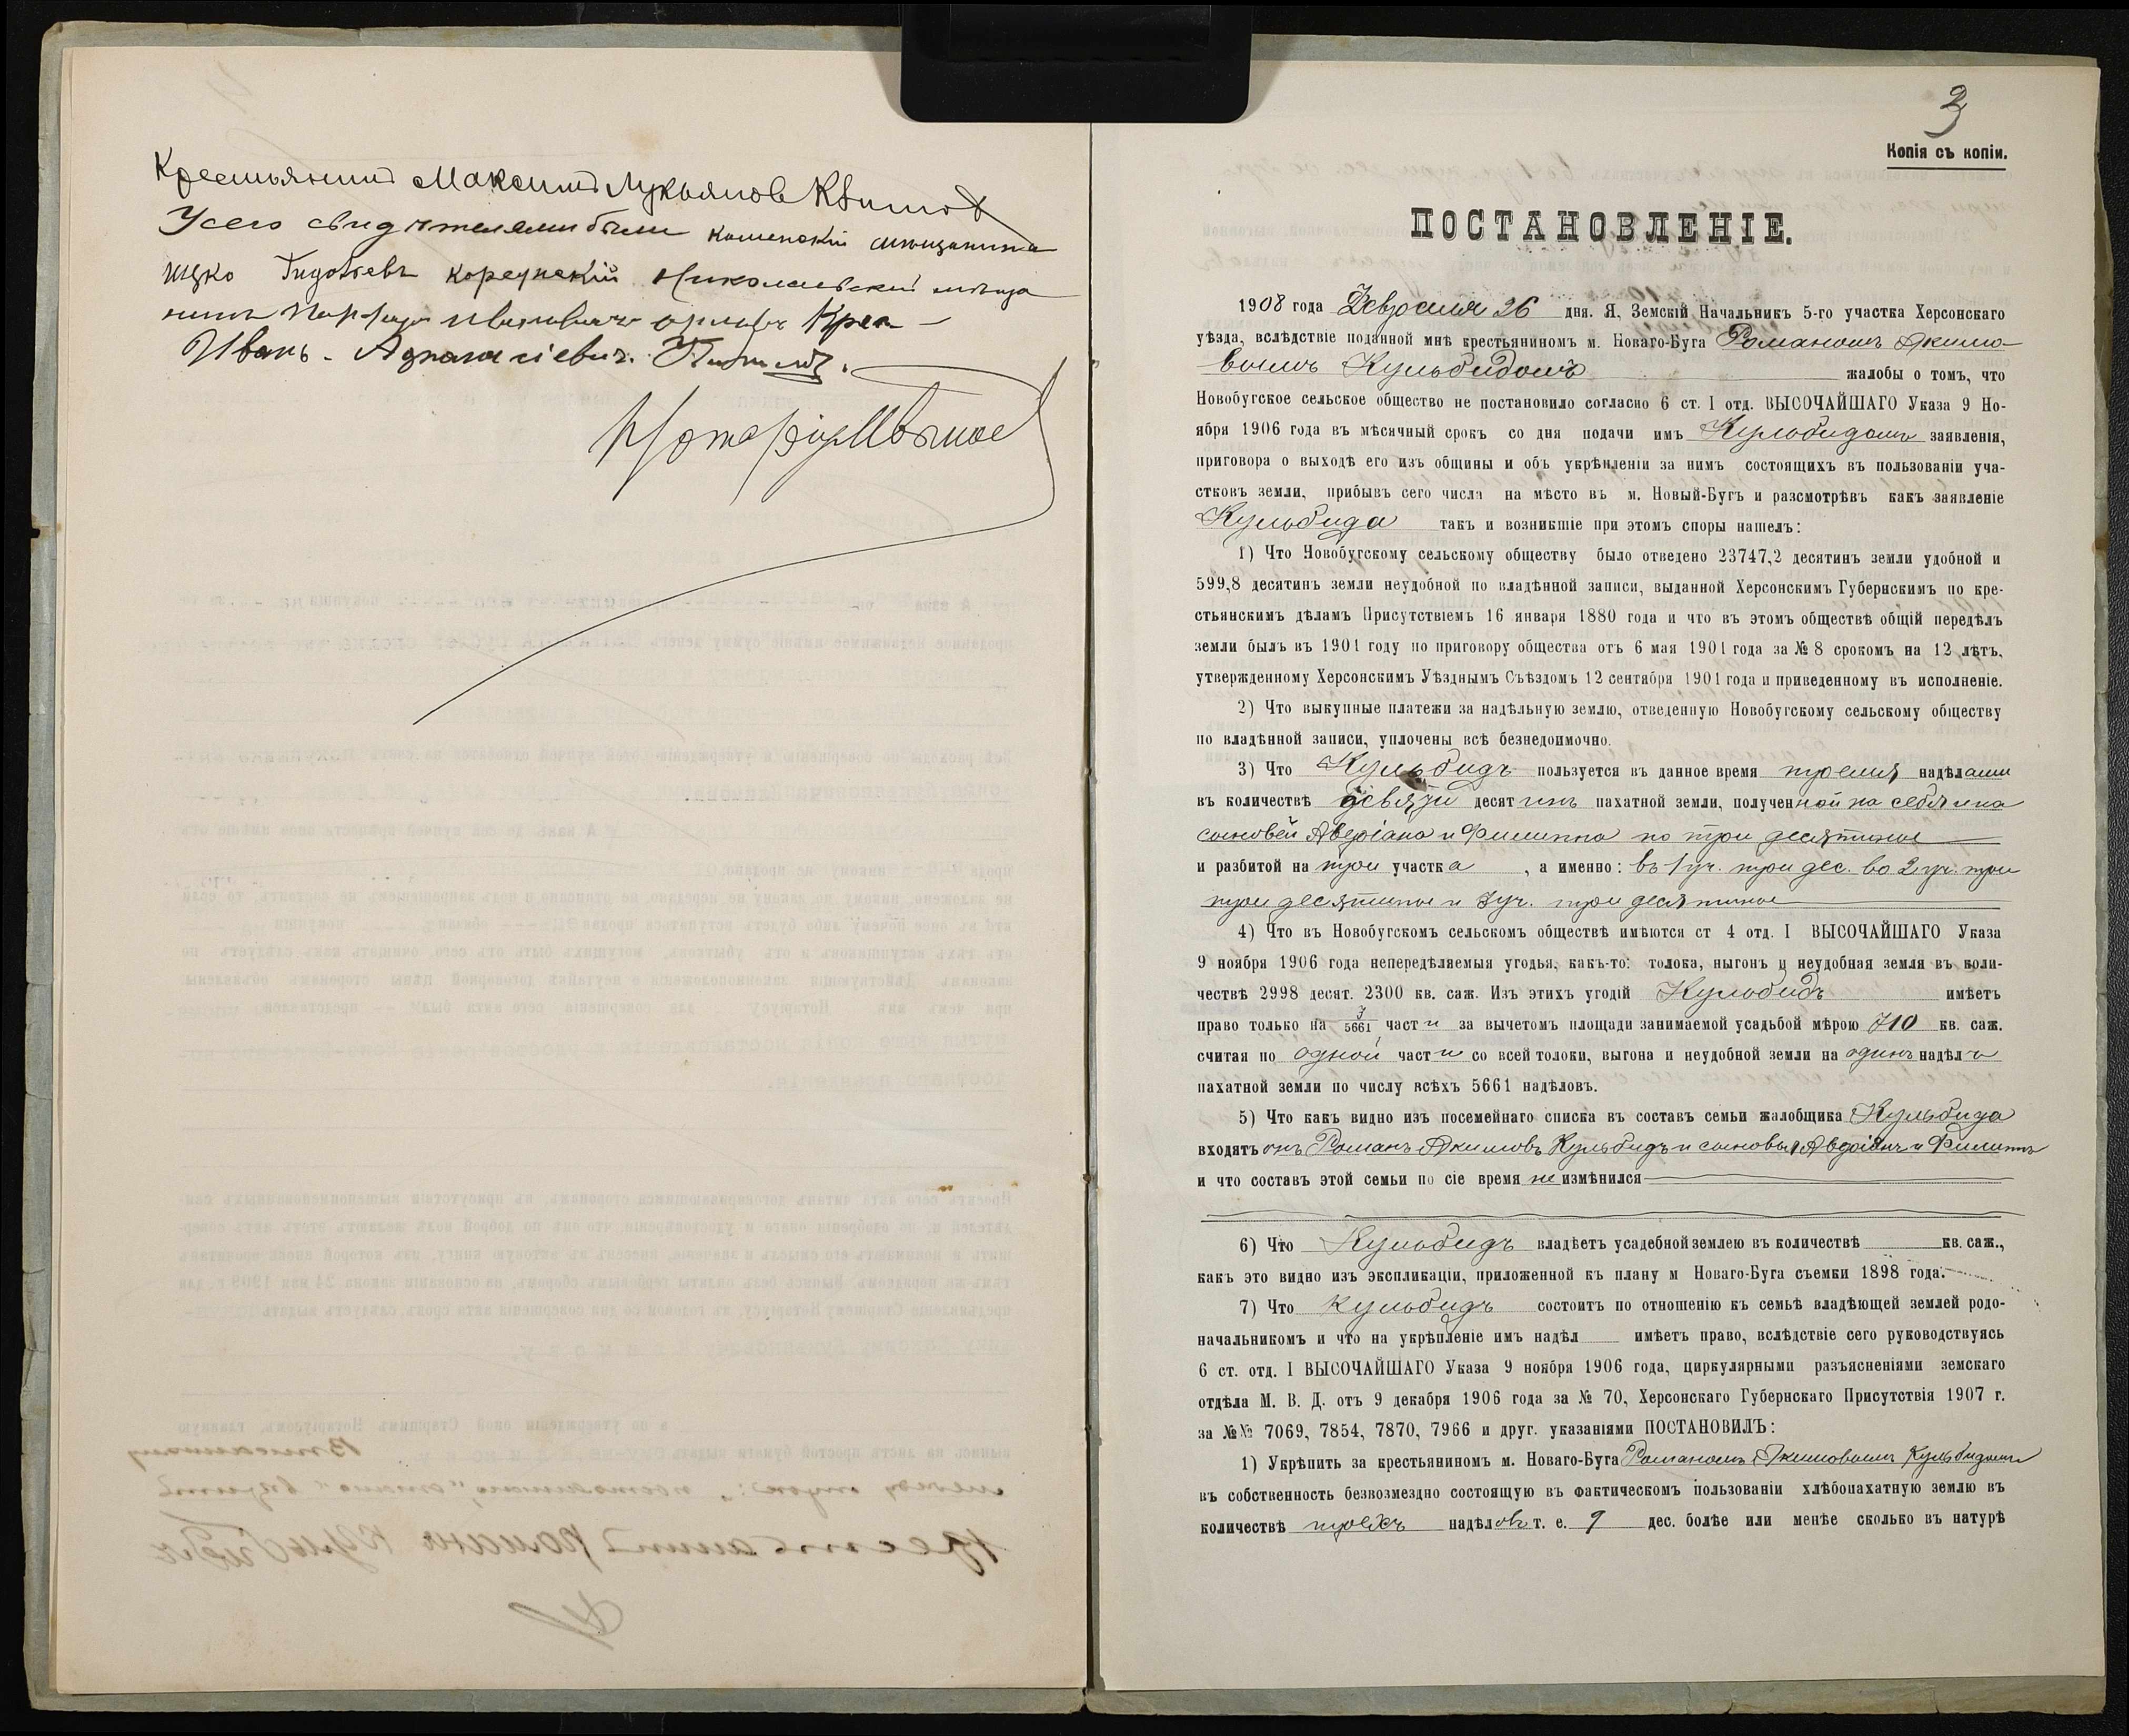 Крестьянинъ Максимъ Лукьяновъ
Усего свидѣтелями были каменскій мѣщанинъ
Ицко корецкій Николаевскій мѣща
нинъ Ивановичъ Крест
Иванъ
Нотаріусъ
3
Копія съ копіи.
ПОСТАНОВЛЕНІЕ.
1908 года Февраля 26 дня. Я, Земскій Начальникъ 5-го участка Херсонскаго
уѣзда, вслѣдствіе поданной мнѣ крестьяниномъ м. Новаго-Буга Романомъ Якимо-
вымъ Кульбидомъ жалобы о томъ, что
Новобугское сельское общество не постановило согласно 6 ст. I отд. ВЫСОЧАЙШАГО Указа 9 Но-
ября 1906 года въ мѣсячный срокъ со дня подачи имъ Кульбидомъ заявленія,
приговора о выходѣ его изъ общины и объ укрѣпленіи за нимъ состоящихъ въ пользованіи уча-
стковъ земли, прибывъ сего числа на мѣсто въ м. Новый-Бугъ и разсмотрѣвъ какъ заявленіе
Кульбида такъ и возникшіе при этомъ споры нашелъ:
1) Что Новобугскому сельскому обществу было отведено 23747,2 десятинъ земли удобной и
599,8 десятинъ земли неудобной по владѣнной записи, выданной Херсонскимъ Губернскимъ по кре-
стьянскимъ дѣламъ Присутствіемъ 16 января 1880 года и что въ этомъ обществѣ общій передѣлъ
земли былъ въ 1901 году по приговору общества отъ 6 мая 1901 года за № 8 срокомъ на 12 лѣтъ,
утвержденному Херсонскимъ Уѣзднымъ Съѣздомъ 12 сентября 1901 года и приведенному въ исполненіе.
2) Что выкупные платежи за надѣльную землю, отведенную Новобугскому сельскому обществу
по владѣнной записи, уплочены всѣ безнедоимочно.
3) Что Кульбидъ пользуется въ данное время тремя надѣлами
въ количествѣ девяти десятинъ пахатной земли, полученной на себя и на
сыновей Аверіана и Филиппа по три десятины
и разбитой на три участка, а именно: въ 1 уч. три дес. во 2 уч. три
три десятины и 3 уч. три десятины
4) Что въ Новобугскомъ сельскомъ обществѣ имѣются ст 4 отд. I ВЫСОЧАЙШАГО Указа
9 ноября 1906 года непередѣляемыя угодья, какъ-то: толока, выгонъ и неудобная земля въ коли-
чествѣ 2998 десят. 2300 кв. саж. Изъ этихъ угодій Кульбидъ имѣетъ
право только на 3/5661 части за вычетомъ площади занимаемой усадьбой мѣрою 710 кв. саж.
считая по одной части со всей толоки, выгона и неудобной земли на одинъ надѣлъ
пахатной земли по числу всѣхъ 5661 надѣловъ.
5) Что какъ видно изъ посемейнаго списка въ составъ семьи жалобщика Кульбида
входятъ онъ Романъ Якимовъ Кульбидъ и сыновья Аверіанъ и Филиппъ
и что составъ этой семьи по сіе время не измѣнился
6) Что Кульбидъ владѣетъ усадебной землею въ количествѣ кв. саж.,
какъ это видно изъ экспликаціи, приложенной къ плану м Новаго-Буга съемки 1898 года.
7) Что Кульбидъ состоитъ по отношенію къ семьѣ владѣющей землей родо-
начальникомъ и что на укрѣпленіе имъ надѣл имѣетъ право, вслѣдствіе сего руководствуясь
6 ст. отд. I ВЫСОЧАЙШАГО Указа 9 ноября 1906 года, циркулярными разъясненіями земскаго
отдѣла М. В. Д. отъ 9 декабря 1906 года за № 70, Херсонскаго Губернскаго Присутствія 1907 г.
за №№ 7069, 7854, 7870, 7966 и друг. указаніями ПОСТАНОВИЛЪ:
1) Укрѣпить за крестьяниномъ м. Новаго-Буга Романомъ Якимовымъ Кульбидомъ
въ собственность безвозмездно состоящую въ фактическомъ пользованіи хлѣбопахатную землю въ
количествѣ трехъ надѣловъ т. е. 9 дес. болѣе или менѣе сколько въ натурѣ